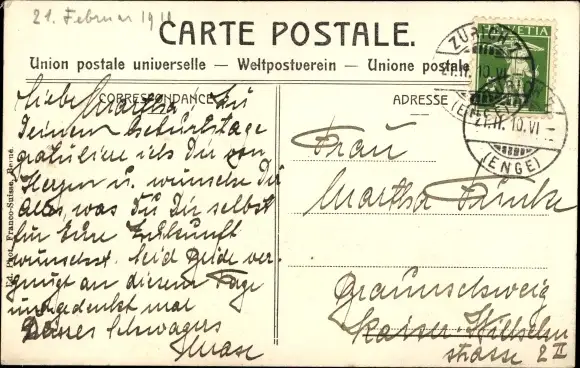 21. Februar 1910
CARTE POSTALE.
Union postale universelle — Weltpostverein — Unione postale
HELVETIA
ZÜRICH
21.II.10.VI
(ENGE)
CORRESPONDANCE
ADRESSE
Liebe Martha! Zu
Deinem Geburtstage
gratuliere ich Dir von
Herzen u. wünsche Dir
alles, was Du Dir selbst
für Eure Zukunft
wünschst. Seid beide ver-
gnügt an diesem Tage
und gedenkt mal
Deines Schwagers
Frau
Martha
Braunschweig
Kaiser-Wilhelm
strasse 2 II
Ed. Phot. Franco-Suisse, Berne.